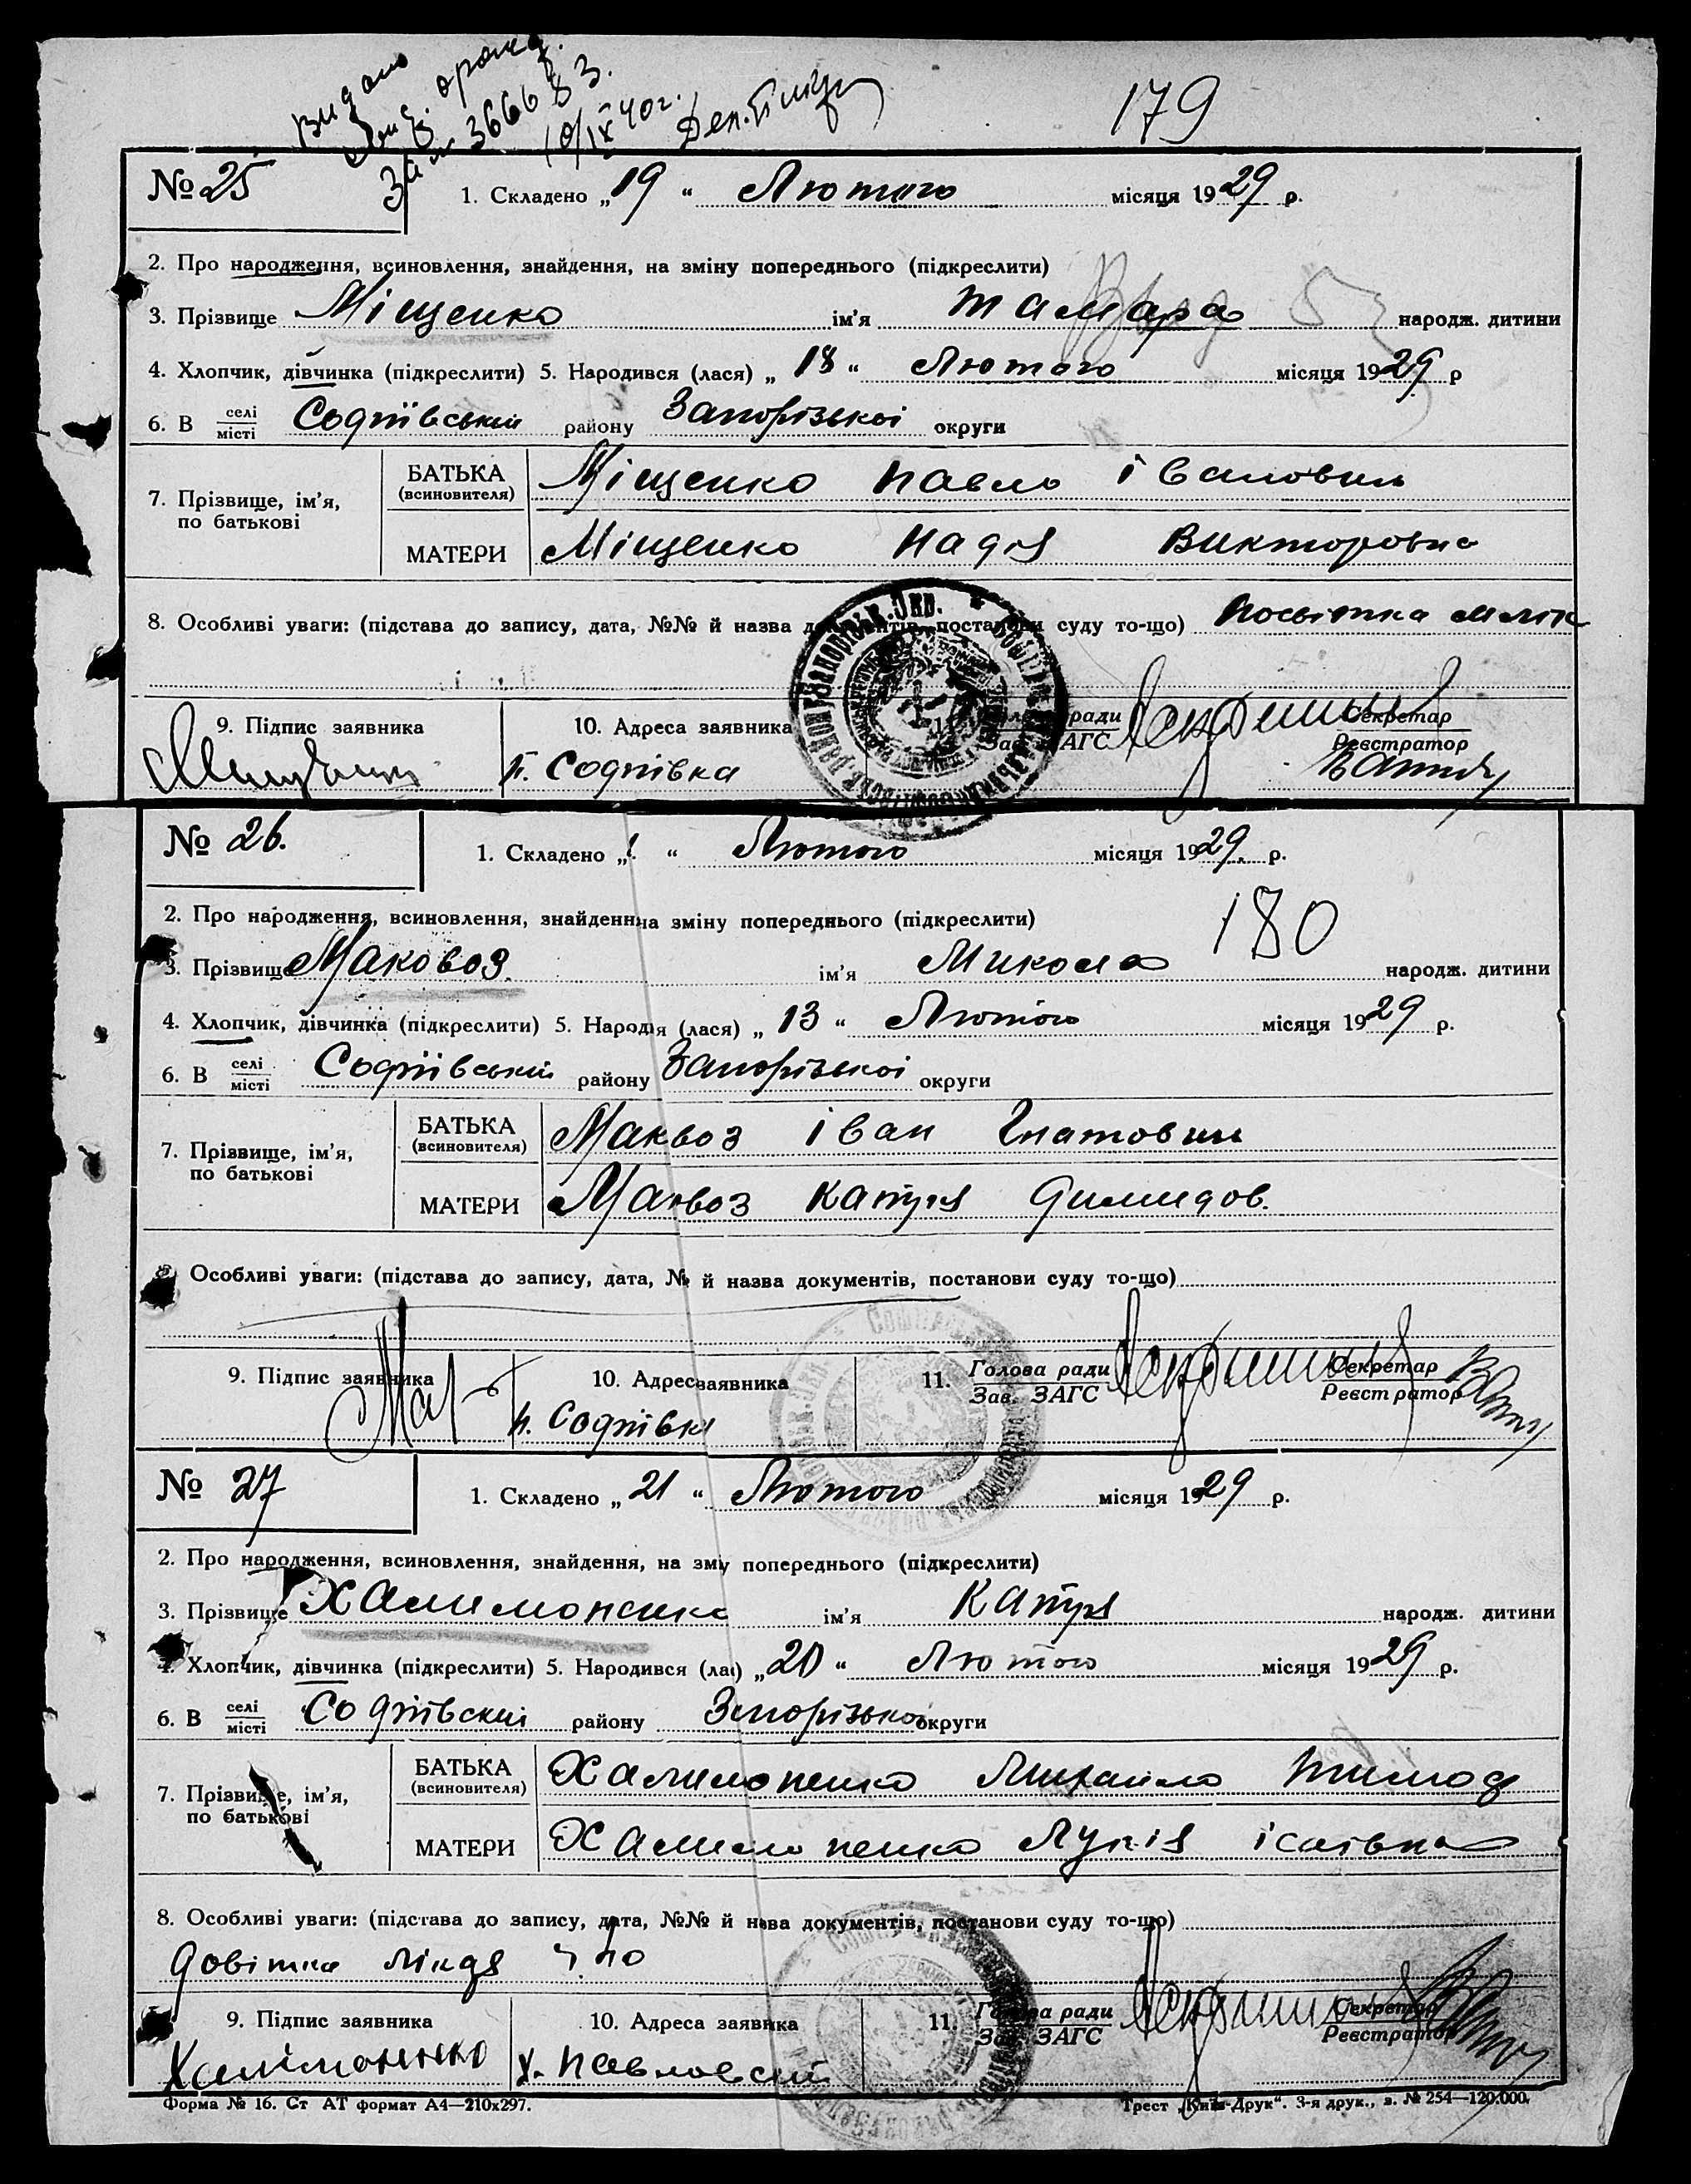 видано
3666683.
10/IX 40 г.
179
№ 25
1. Складено „19“ Лютого місяця 1929 р.
2. Про народження, всиновлення, знайдення, на зміну попереднього (підкреслити)
3. Прізвище Міщенко ім'я Тамара народж. дитини
4. Хлопчик, дівчинка (підкреслити) 5. Народився (лася) „18“ Лютого місяця 1929 р
6. В селі місті Софіївський району Запорізької округи
7. Прізвище, ім'я, по батькові
БАТЬКА (всиновителя) Міщенко Павло Іванович
МАТЕРИ Міщенко Надія Викторовна
8. Особливі уваги: (підстава до запису, дата, №№ й назва документів, постанови суду то-що) Посвітка
9. Підпис заявника 10. Адреса заявника ради ЗАГС Секретар Реєстратор
п. Софіївка
№ 26.
1. Складено „ “ Лютого місяця 1929. р.
2. Про народження, всиновлення, знайденн на зміну попереднього (підкреслити)
180
3. Прізвище Маковоз. ім'я Микола народж. дитини
4. Хлопчик, дівчинка (підкреслити) 5. Народ я (лася) „13“ Лютого місяця 1929 р.
6. В селі місті Софіївський району Запорізької округи
7. Прізвище, ім'я, по батькові
БАТЬКА (всиновителя) Маквоз Іван Гнатович
МАТЕРИ Маквоз Катря Димидов.
8. Особливі уваги: (підстава до запису, дата, № й назва документів, постанови суду то-що)
9. Підпис заявника 10. Адрес заявника 11. Голова ради Зав. ЗАГС Секретар Реєстратор
п. Софіївка
№ 27
1. Складено „21“ Лютого місяця 1929 р.
2. Про народження, всиновлення, знайдення, на зм у попереднього (підкреслити)
3. Прізвище Халимоненко ім'я Катря народж. дитини
4. Хлопчик, дівчинка (підкреслити) 5. Народився (ла ) „20“ Лютого місяця 1929 р.
6. В селі місті Софіївский району Запорізької округи
7. Прізвище, ім'я, по батькові
БАТЬКА (всиновителя) Халимоненко Михайло Тимоф
МАТЕРИ Халимоненко Лукія Ісаівна
8. Особливі уваги: (підстава до запису, дата, №№ й н ва документів, постанови суду то-що)
Довітка
9. Підпис заявника 10. Адреса заявника 11. Голова ради Зав. ЗАГС Секретар Реєстратор
Халімоненко х. Павловский
Форма № 16. Ст АТ формат А4—210х297. Трест „Київ-Друк“. 3-я друк., з. № 254—120.000.